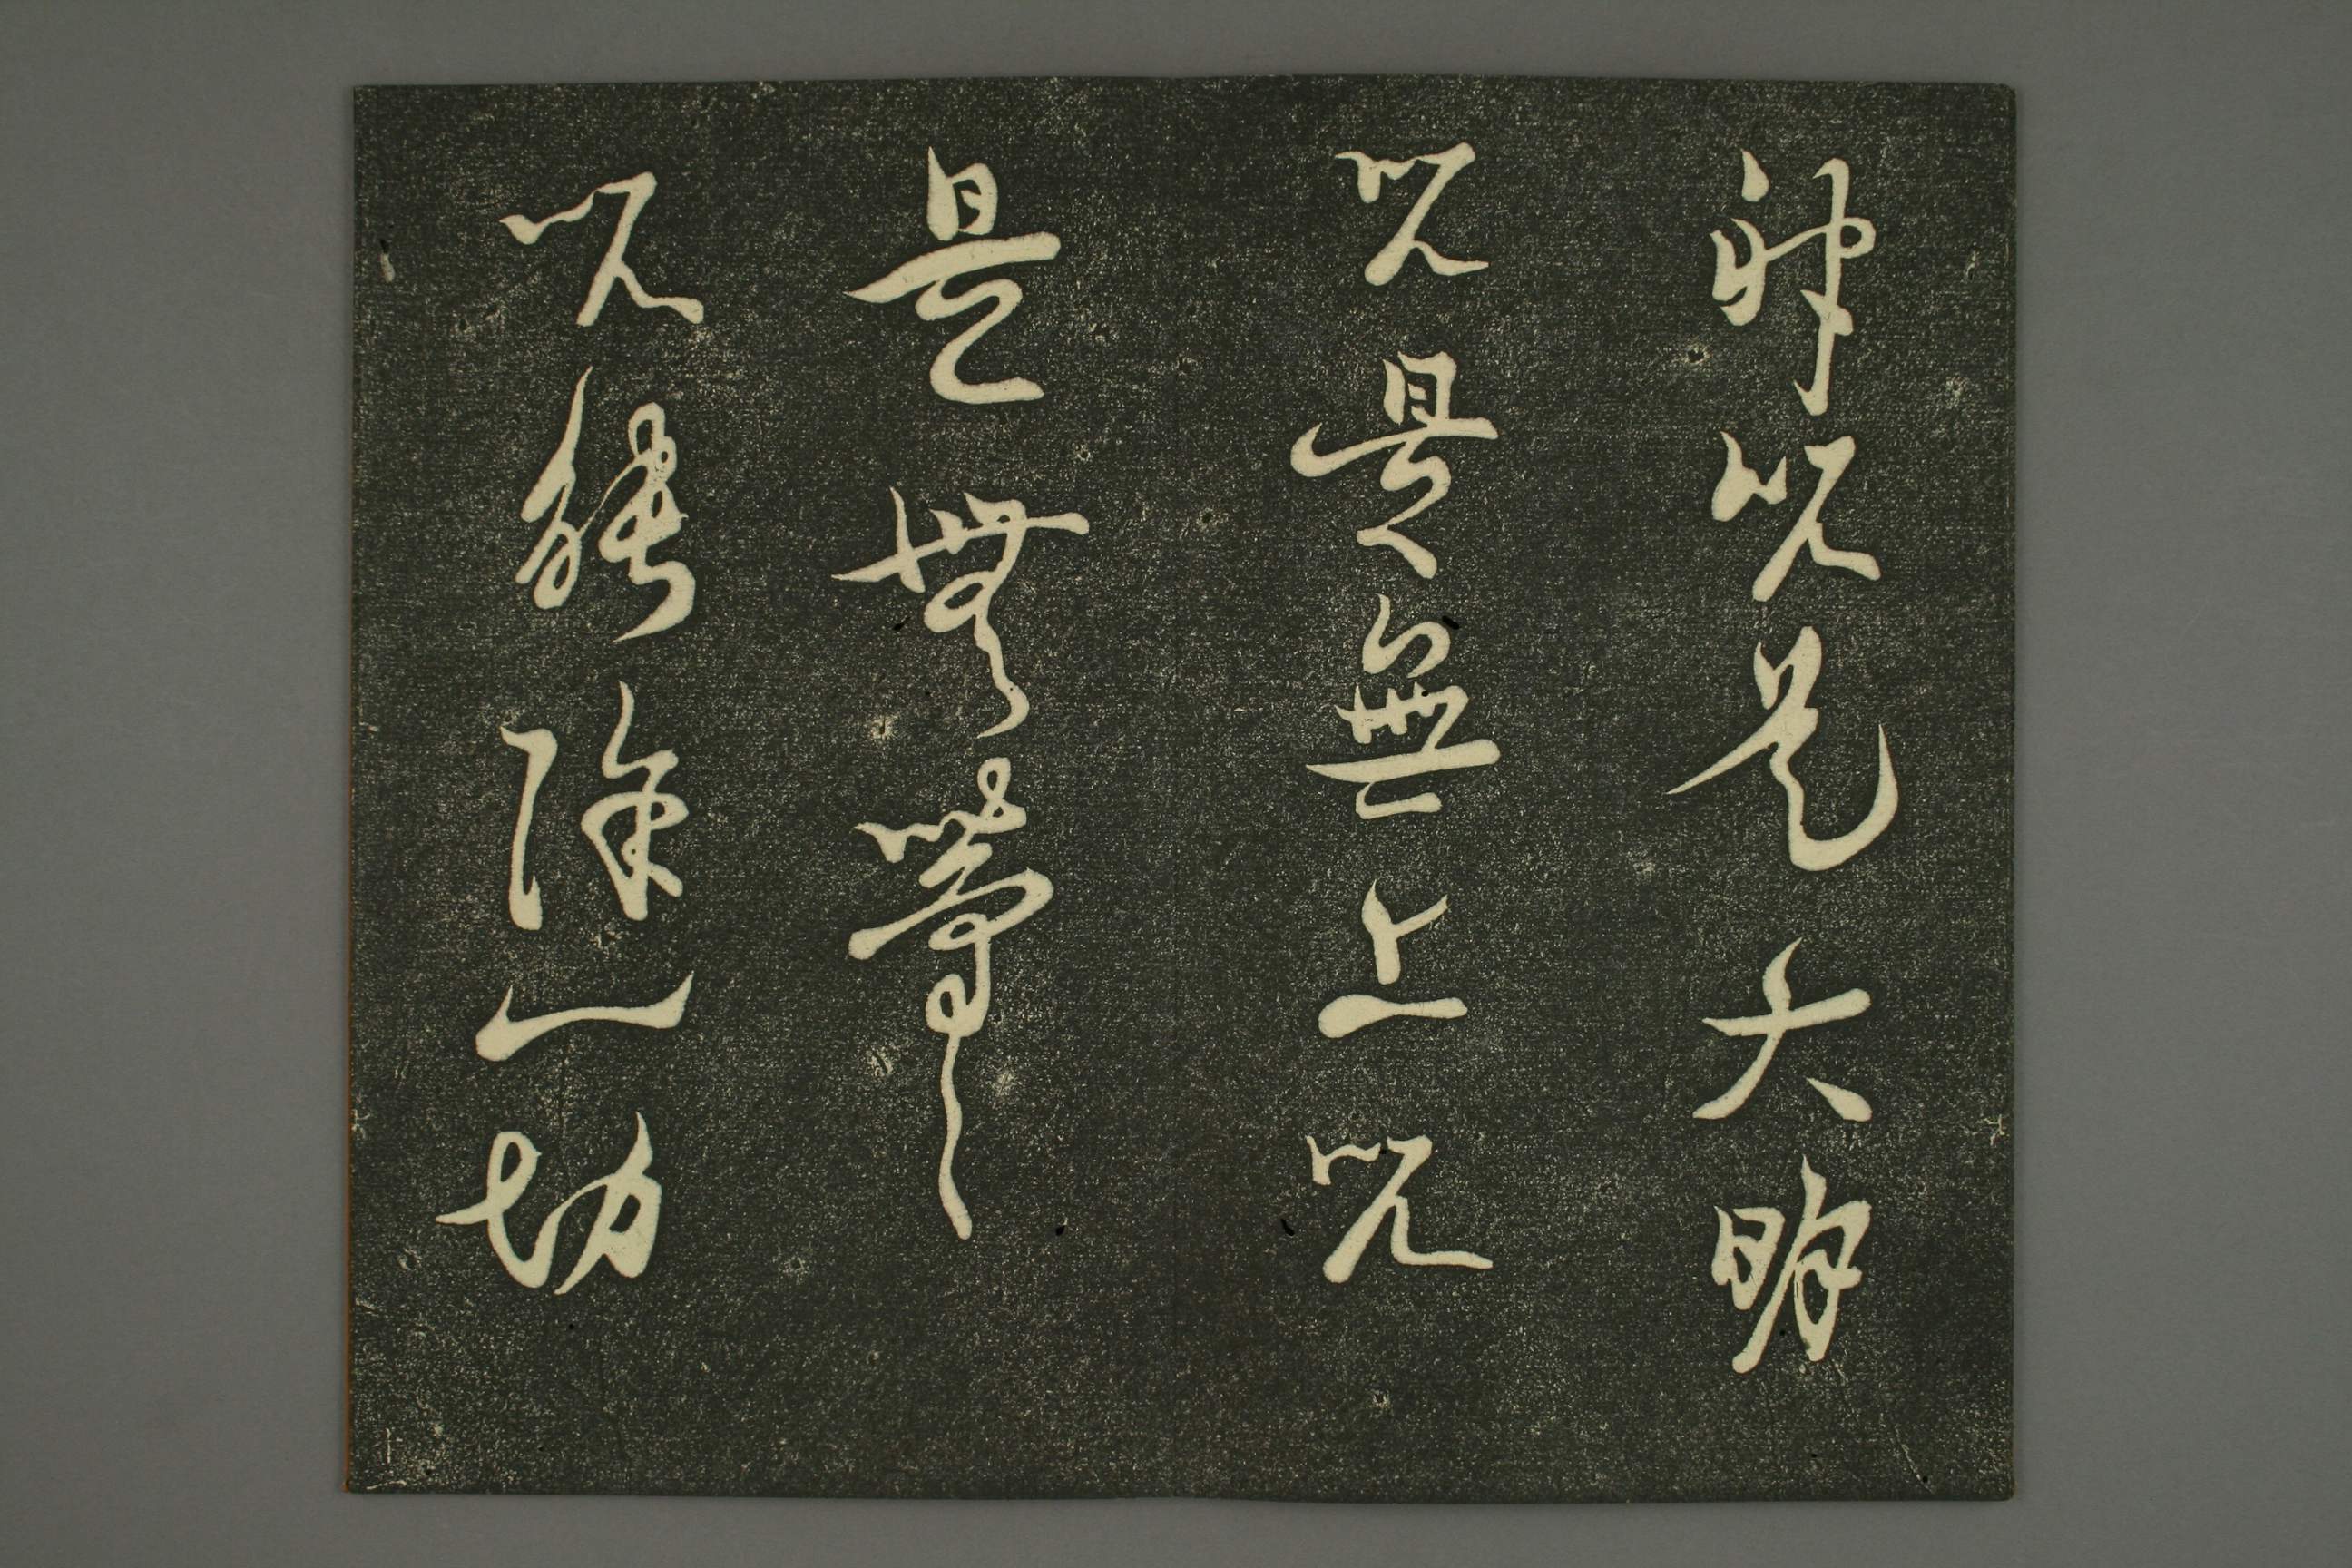 神咒是大明
咒是無上咒
是無等等
咒能除一切